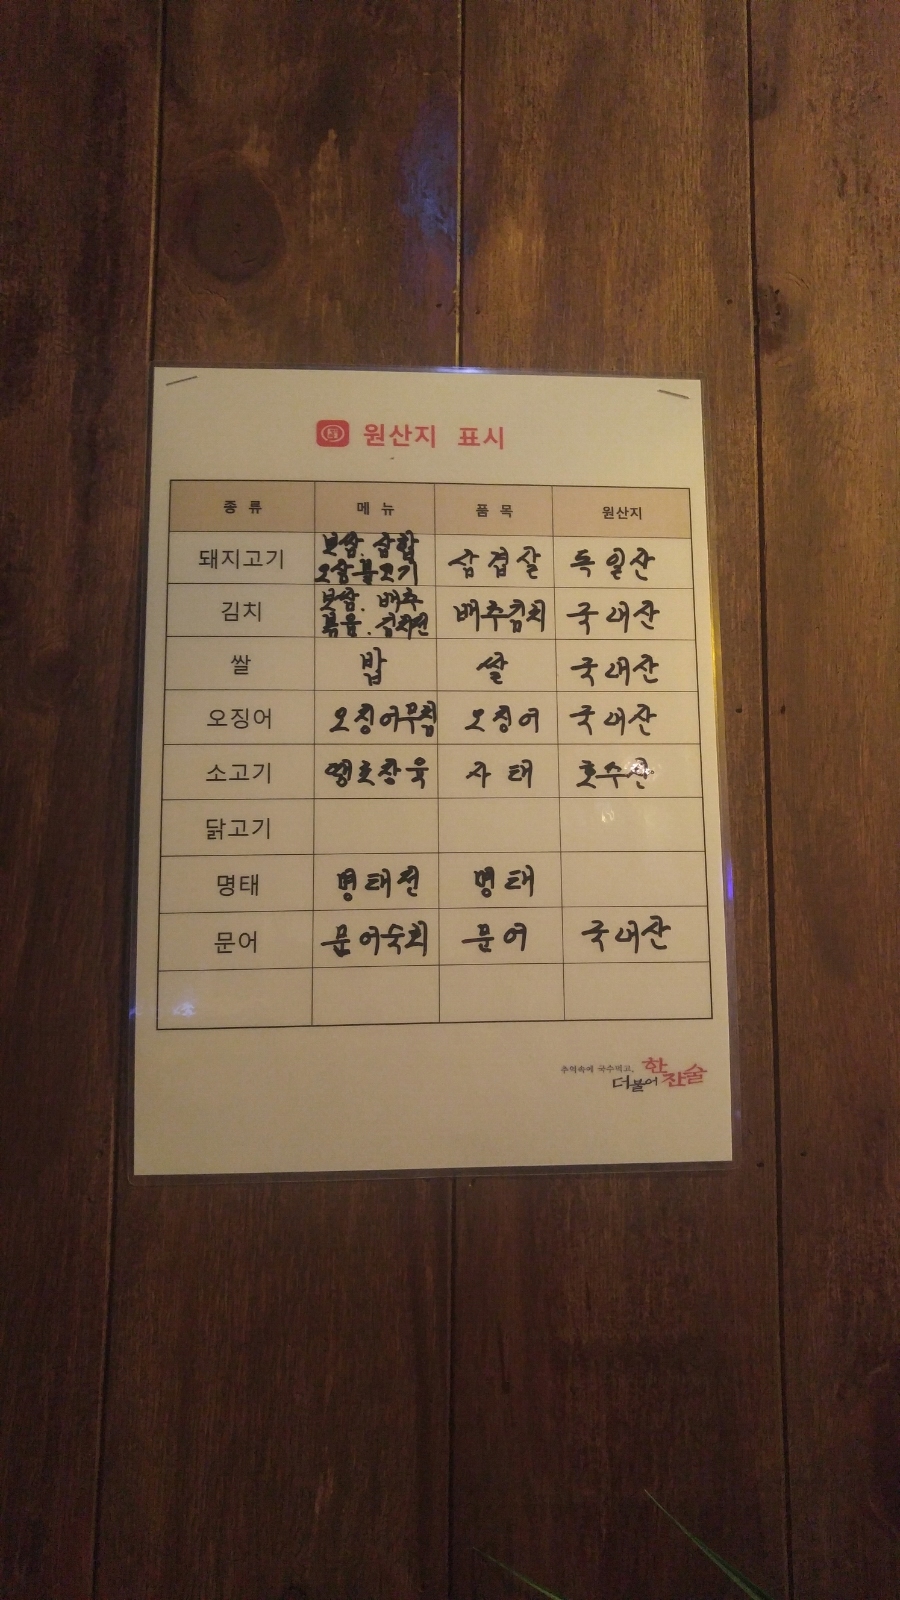 원산지 표시
종류 메뉴 품목 원산지
돼지고기 보쌈. 삼합 삼겹살 독일산
오삼불고기
김치 보쌈. 배추 배추김치 국내산
볶음. 김치전
쌀 밥 쌀 국내산
오징어 오징어무침 오징어 국내산
소고기 사태 호수산
닭고기
명태 명태전 명태
문어 문어숙회 문어 국내산
추억속에 국수먹고, 한
더불어 잔술